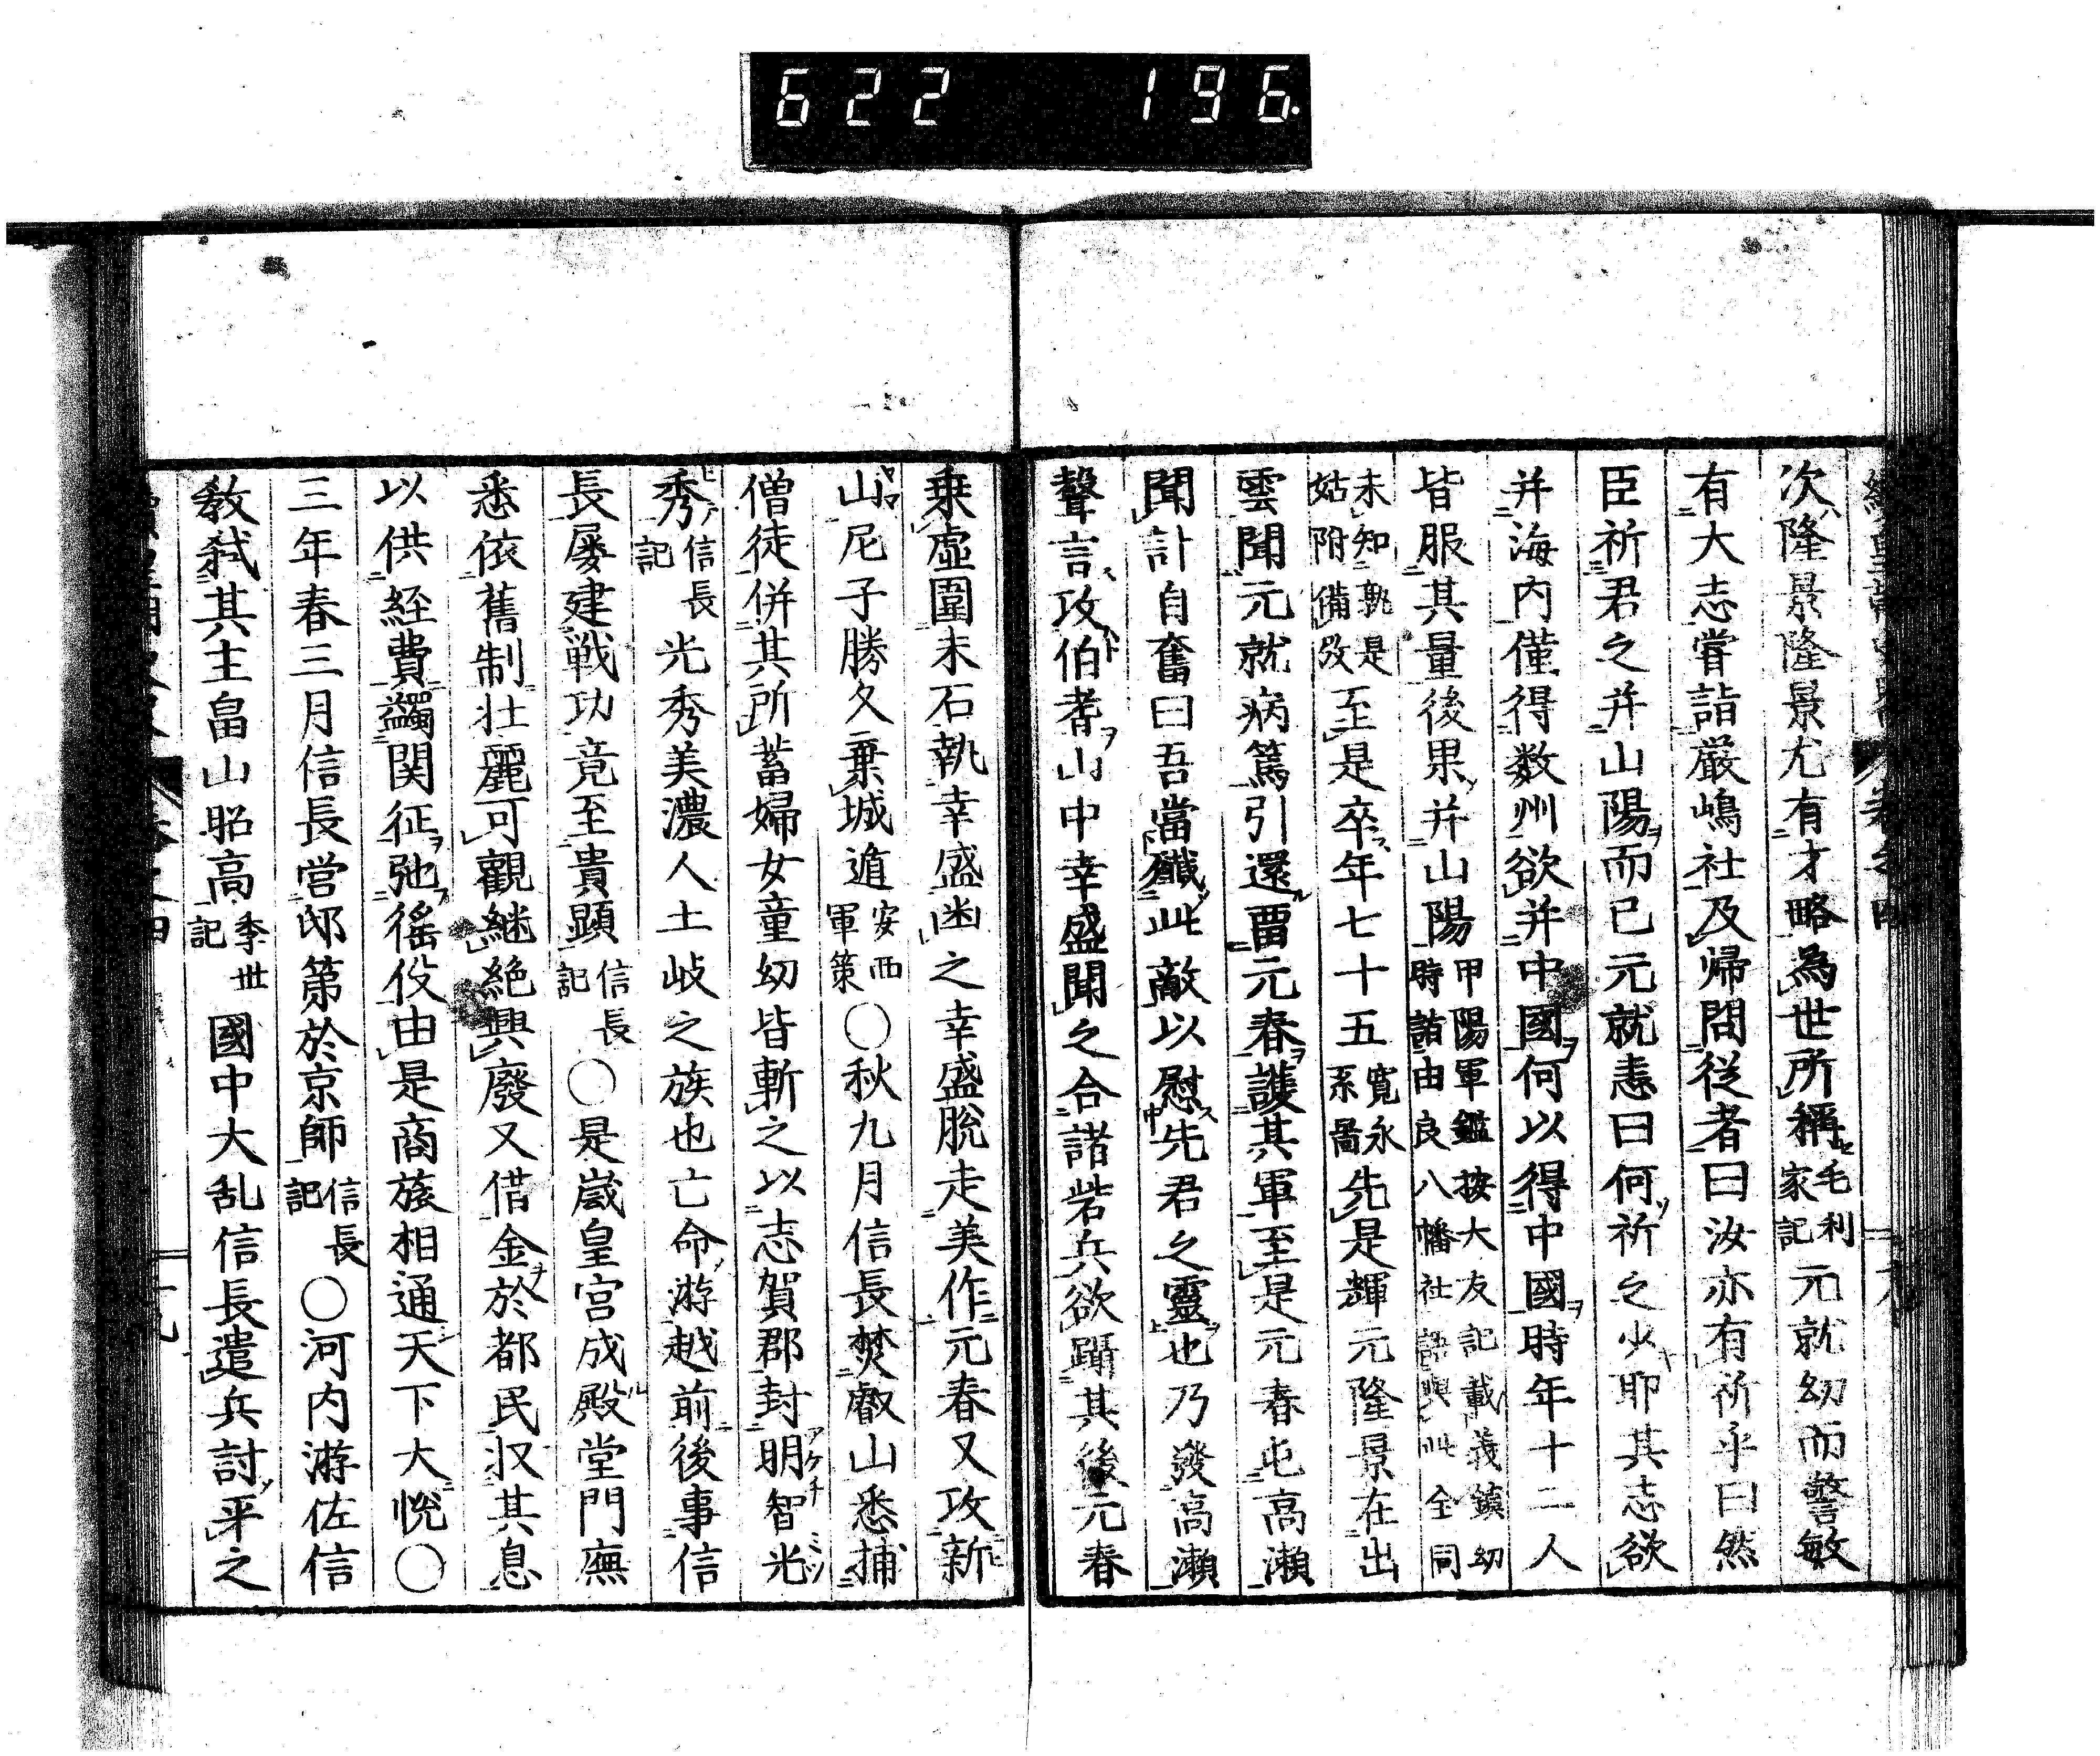 622 196.
次隆景隆景尤有才略為世所稱毛利家記元就幼而警敏
有大志甞詣厳嶋社及帰問從者曰汝亦有祈乎曰然
臣祈君之并山陽而已元就恚曰何祈之少耶其志欲
并海内僅得数州欲并中國何以得中國時年十二人
皆服其量後果并山陽甲陽軍鑑按大友記載義鎮幼時詣由良八幡社語與此全同
未知孰是姑附備攷至是卒年七十五寛永系圖先是輝元隆景在出
雲聞元就病篤引還畱元春護其軍至是元春屯高瀬
聞訃自奮曰吾當殲此敵以慰先君之靈也乃發高瀬
聲言攻伯耆山中幸盛聞之合諸砦兵欲躡其後元春
乗虛圍末石執幸盛囚之幸盛脱走美作元春又攻新
山尼子勝久棄城遁安西軍策〇秋九月信長焚叡山悉捕
僧徒併其所蓄婦女童幼皆斬之以志賀郡封明智光
秀信長記光秀美濃人土岐之族也亡命游越前後事信
長屡建戦功竟至貴顕信長記〇是歳皇宮成殿堂門廡
悉依舊制壮麗可觀継絶興廢又借金於都民収其息
以供経費蠲関征弛徭役由是商旅相通天下大悦〇
三年春三月信長営邸第於京師信長記〇河内游佐信
教弑其主畠山昭高季世記國中大乱信長遣兵討平之